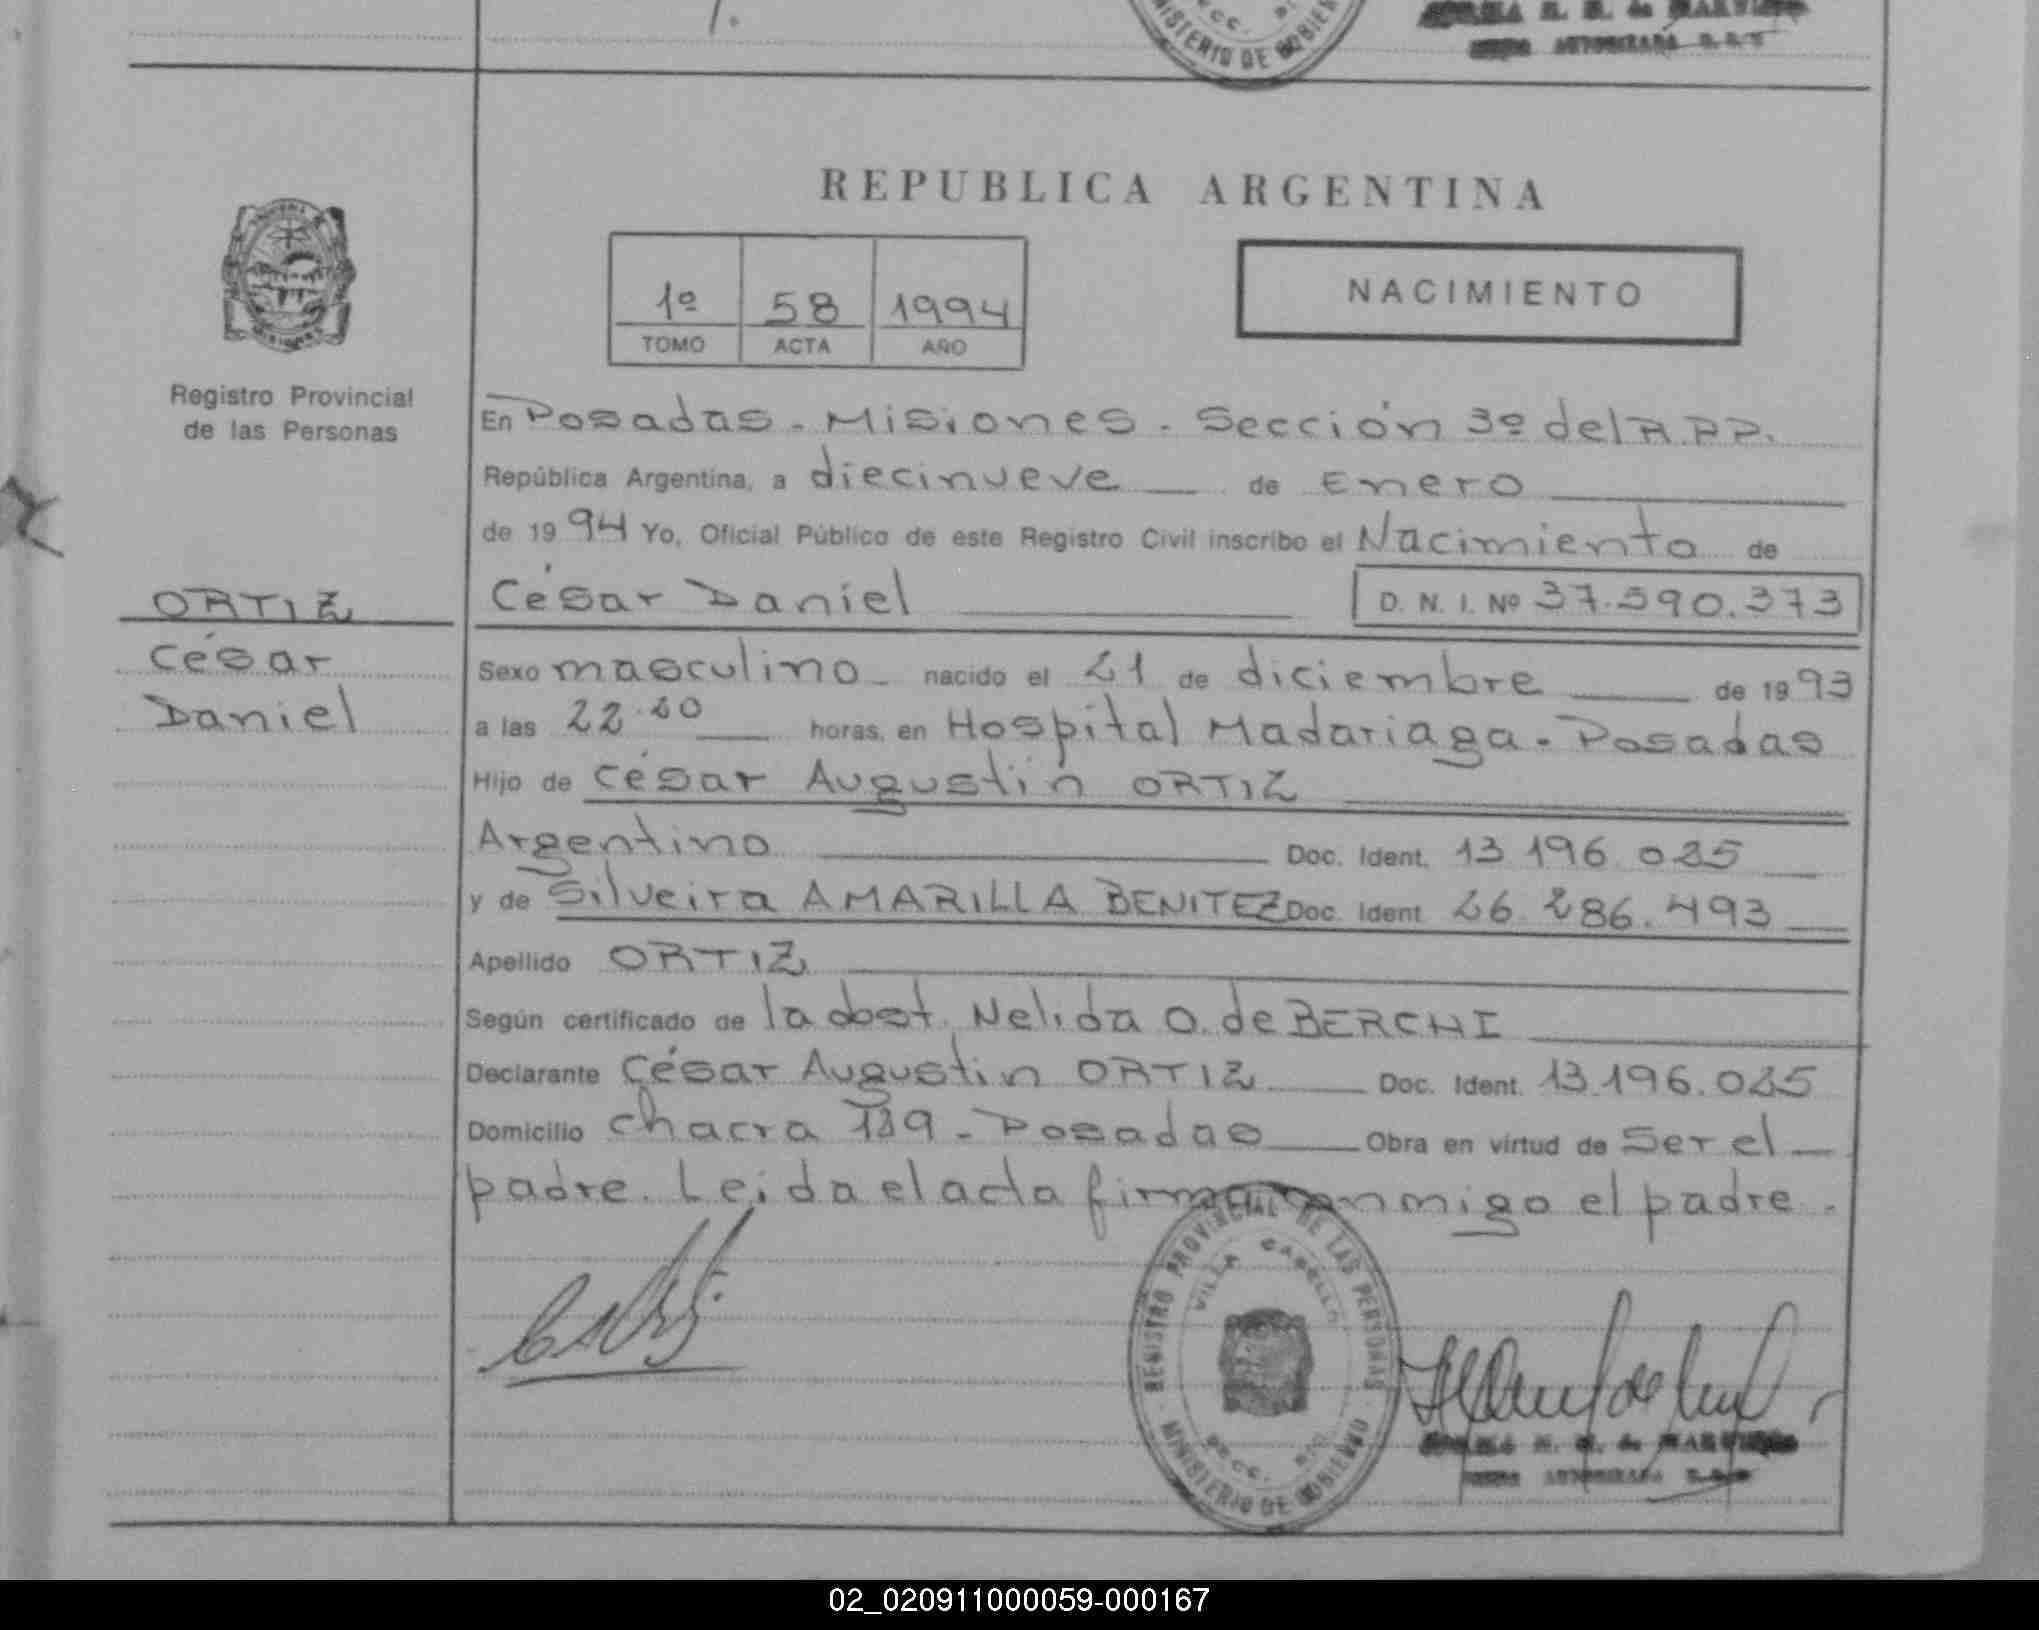 MINISTERIO DE GOBIERNO
REPUBLICA ARGENTINA
1º 58 1994
TOMO ACTA AÑO
NACIMIENTO
Registro Provincial
de las Personas
En Posadas - Misiones - Sección 3º del R.P.P.
República Argentina, a diecinueve de Enero
de 1994 Yo, Oficial Público de este Registro Civil inscribo el Nacimiento de
ORTIZ
César
Daniel
César Daniel D. N. I. Nº 37.590.373
Sexo masculino nacido el 21 de diciembre de 1993
a las 22.20 horas, en Hospital Madariaga - Posadas
Hijo de César Augustin ORTIZ
Argentino Doc. Ident. 13.196.025
y de Silveira AMARILLA BENITEZ Doc. Ident 26.286.493
Apellido ORTIZ
Según certificado de la obst. Nelida O. de BERCHI
Declarante César Augustin ORTIZ Doc. Ident. 13.196.025
Domicilio Chacra - Posadas Obra en virtud de Ser el
padre. Leida el acta firma conmigo el padre.
REGISTRO PROVINCIAL DE LAS PERSONAS
VILLA CABELLO
SECC.
MINISTERIO DE GOBIERNO
02_020911000059-000167